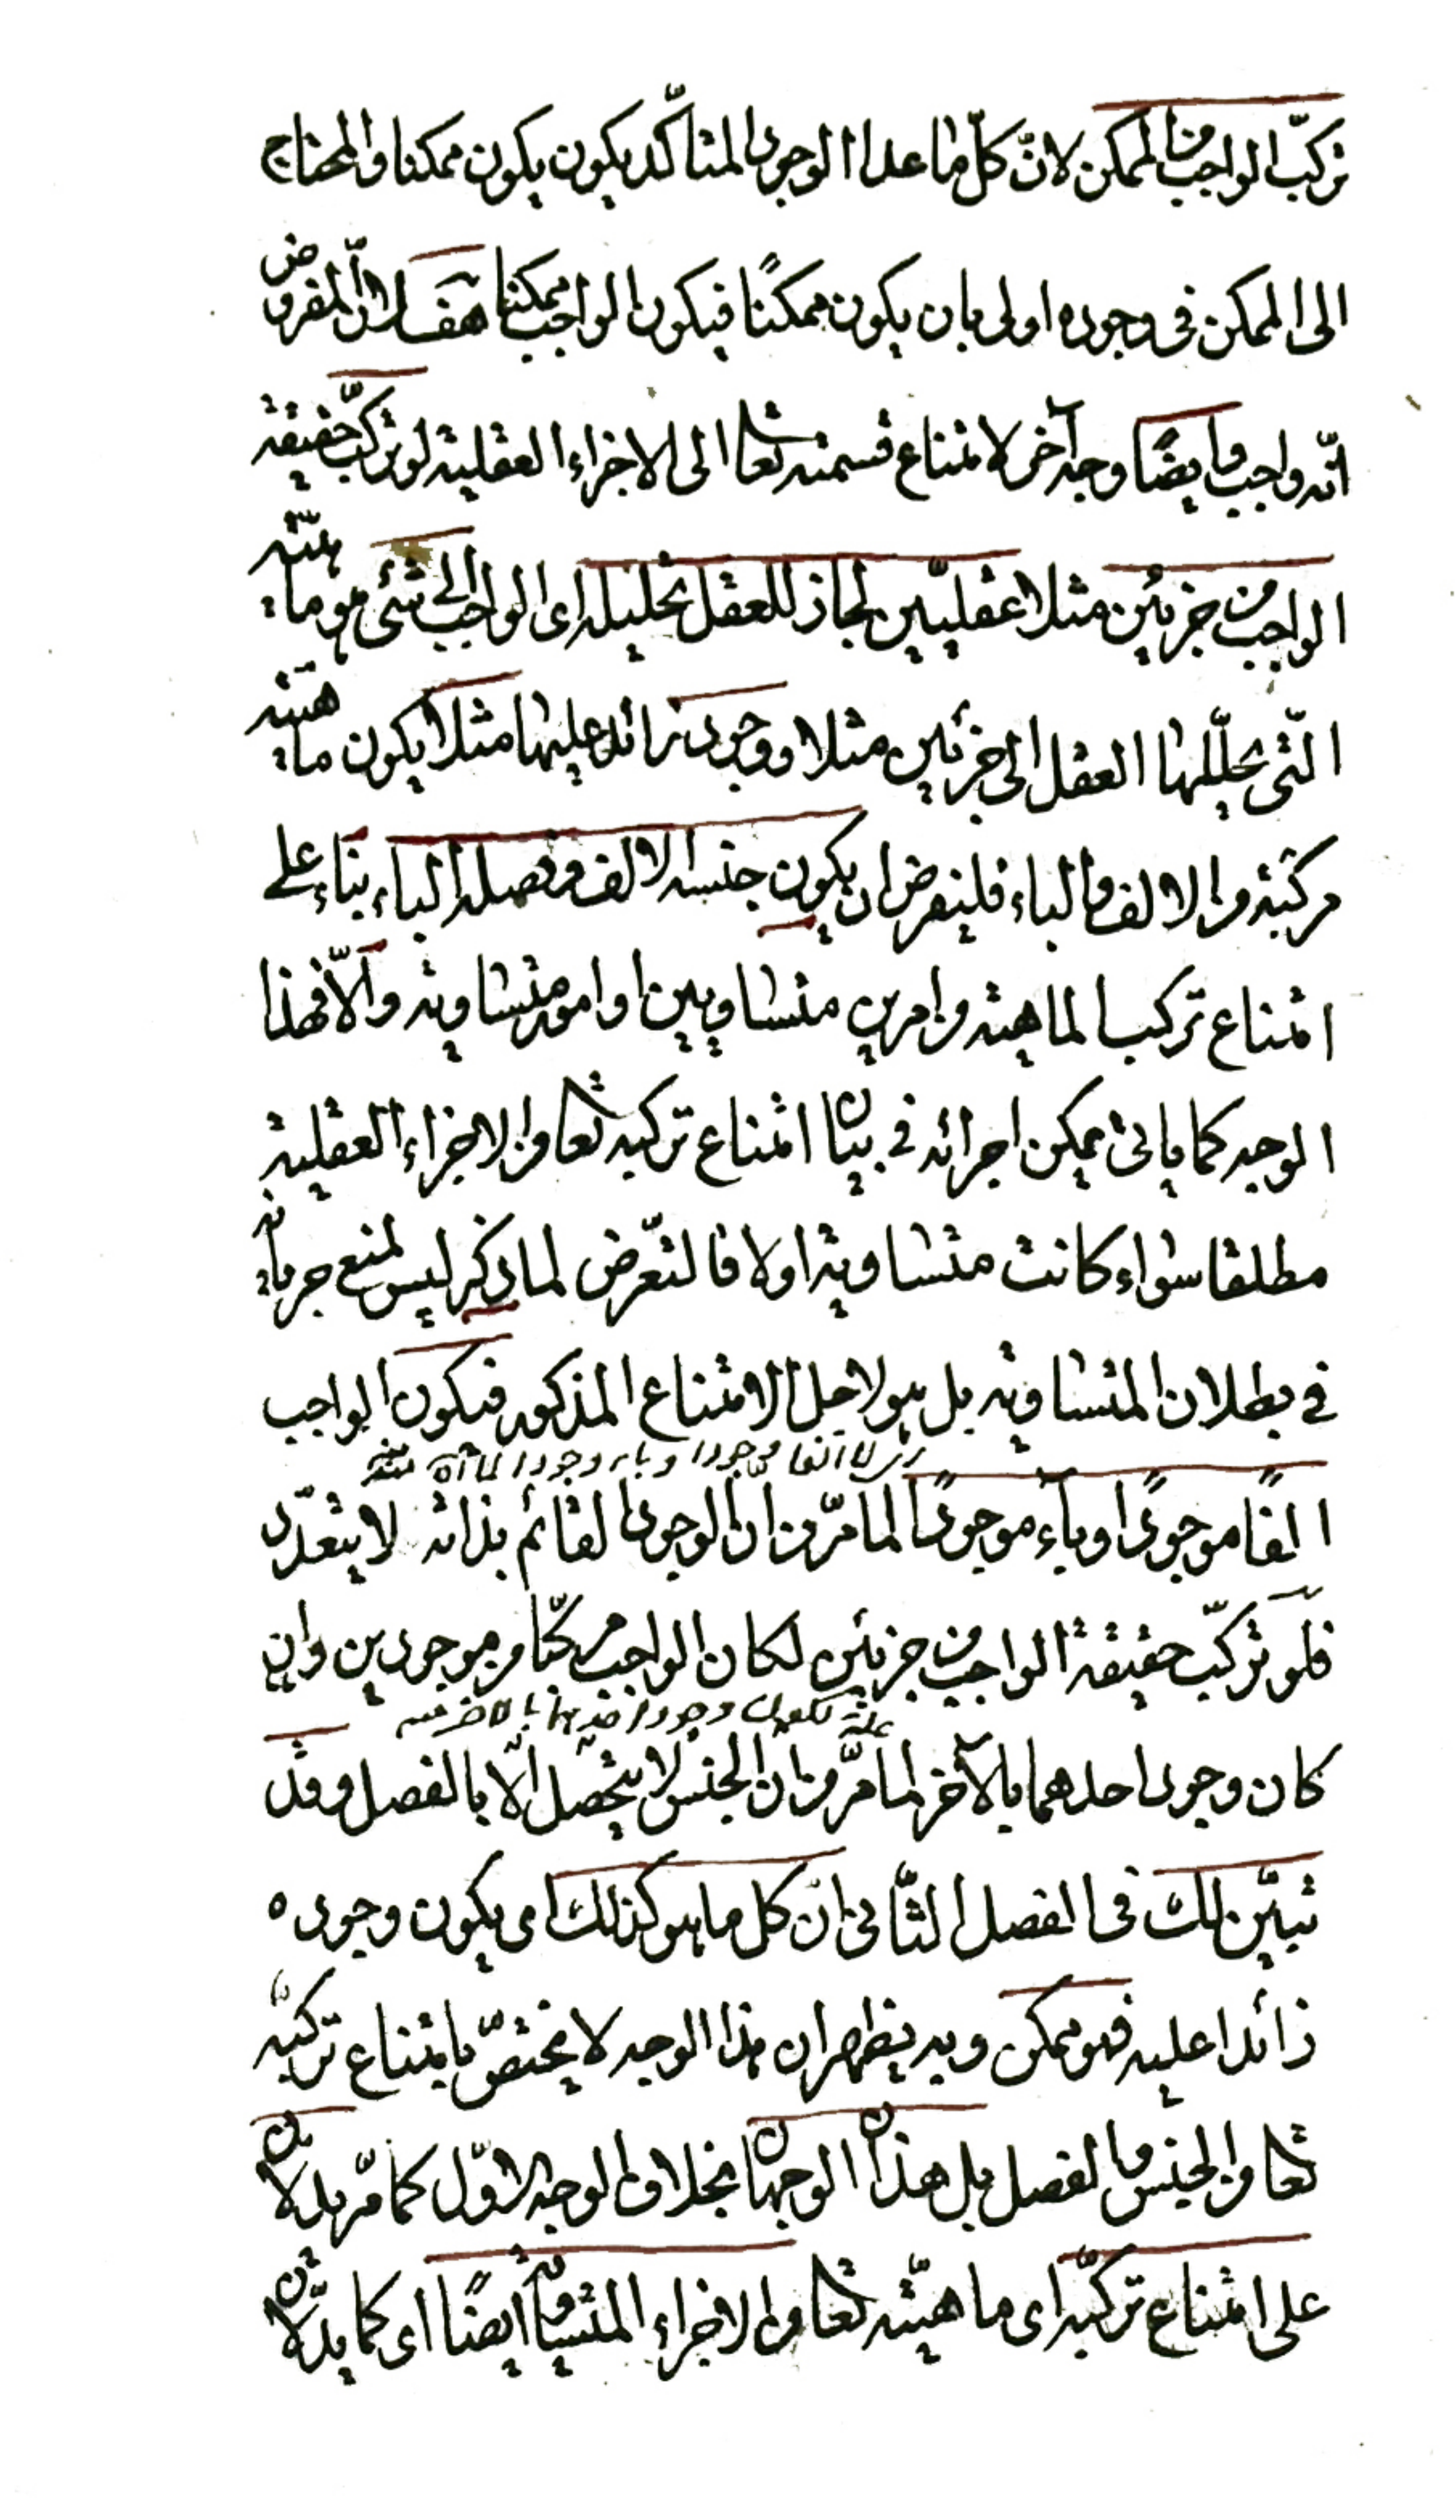 تركّب الواجب من الممكن لانّ كلّ ما عدا الوجود المتأكّد يكون يكون ممكنا والمحتاج
الى الممكن فى وجوده اولى بان يكون ممكنًا فيكون الواجب ممكنا هف لانّ المفروض
انّه واجب وايضًا وجه آخر لامتناع قسمته تعا الى الاجزاء العقلية لو تركّب حقيقة
الواجب من جزئين مثلا عقليّين لجاز للعقل تحليله اى الواجب الى شئ هو ماهيّته
الّتى يحلّلها العقل الى جزئين مثلا ووجود زائد عليها مثلا يكون ماهيته
مركبة من الالف والباء فلنفرض ان يكون جنسه الالف وفصله الباء بناء على
امتناع تركب الماهية من امرين متساويين او امور متساوية والّا فهذا
الوجه كما يأتى يمكن اجرائه فى بيان امتناع تركبه تعا من الاجزاء العقلية
مطلقا سواء كانت متساوية اولا فالتعّرض لما ذكر ليس لمنع جريانه
فى بطلان المتساوية بل هو لاجل الامتناع المذكور فيكون الواجب
الفا موجودا وباء وجودا لما
الفًا موجودًا وباءً موجودًا لما مرّ من انّ الوجود القائم بذاته لا يتعدّد
فلو تركّب حقيقة الواجب من جزئين لكان الواجب مركّبا من موجودين وان
علة لكون وجود احدهما بالاخر منه
كان وجود احدهما بالآخر لما مرّ من ان الجنس لا يتحصّل الّا بالفصل وقد
تبيّن لك فى الفصل الثّانى انّ كل ما هو كذلك اى يكون وجوده
زائدا عليه فهو ممكن وبه يظهر ان هذا الوجه لا يختصّ بامتناع تركبّه
تعا من الجنس والفصل بل هذان الوجهان بخلاف الوجه الاوّل كما مرّ يدلان
على امتناع تركبّه اى ماهيّته تعا من الاجزاء المتساوية ايضًا اى كما يدلّان